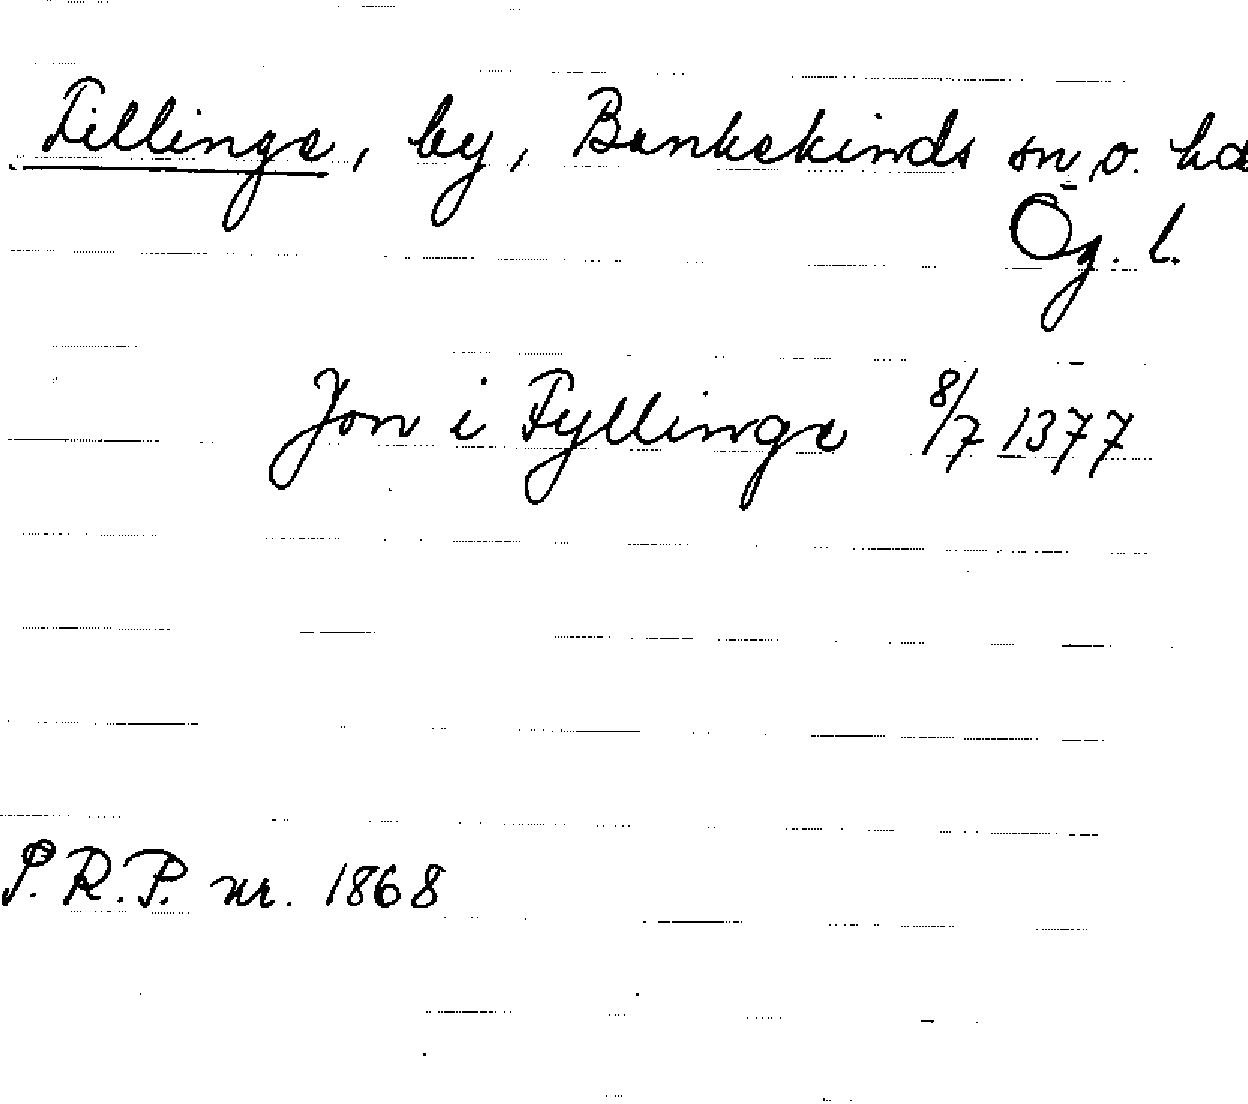 Fillinge, by, Bankekinds sn o. hd
Ög. l.
Jon i Fyllinge 8/7 1377
P.R.P. nr. 1868